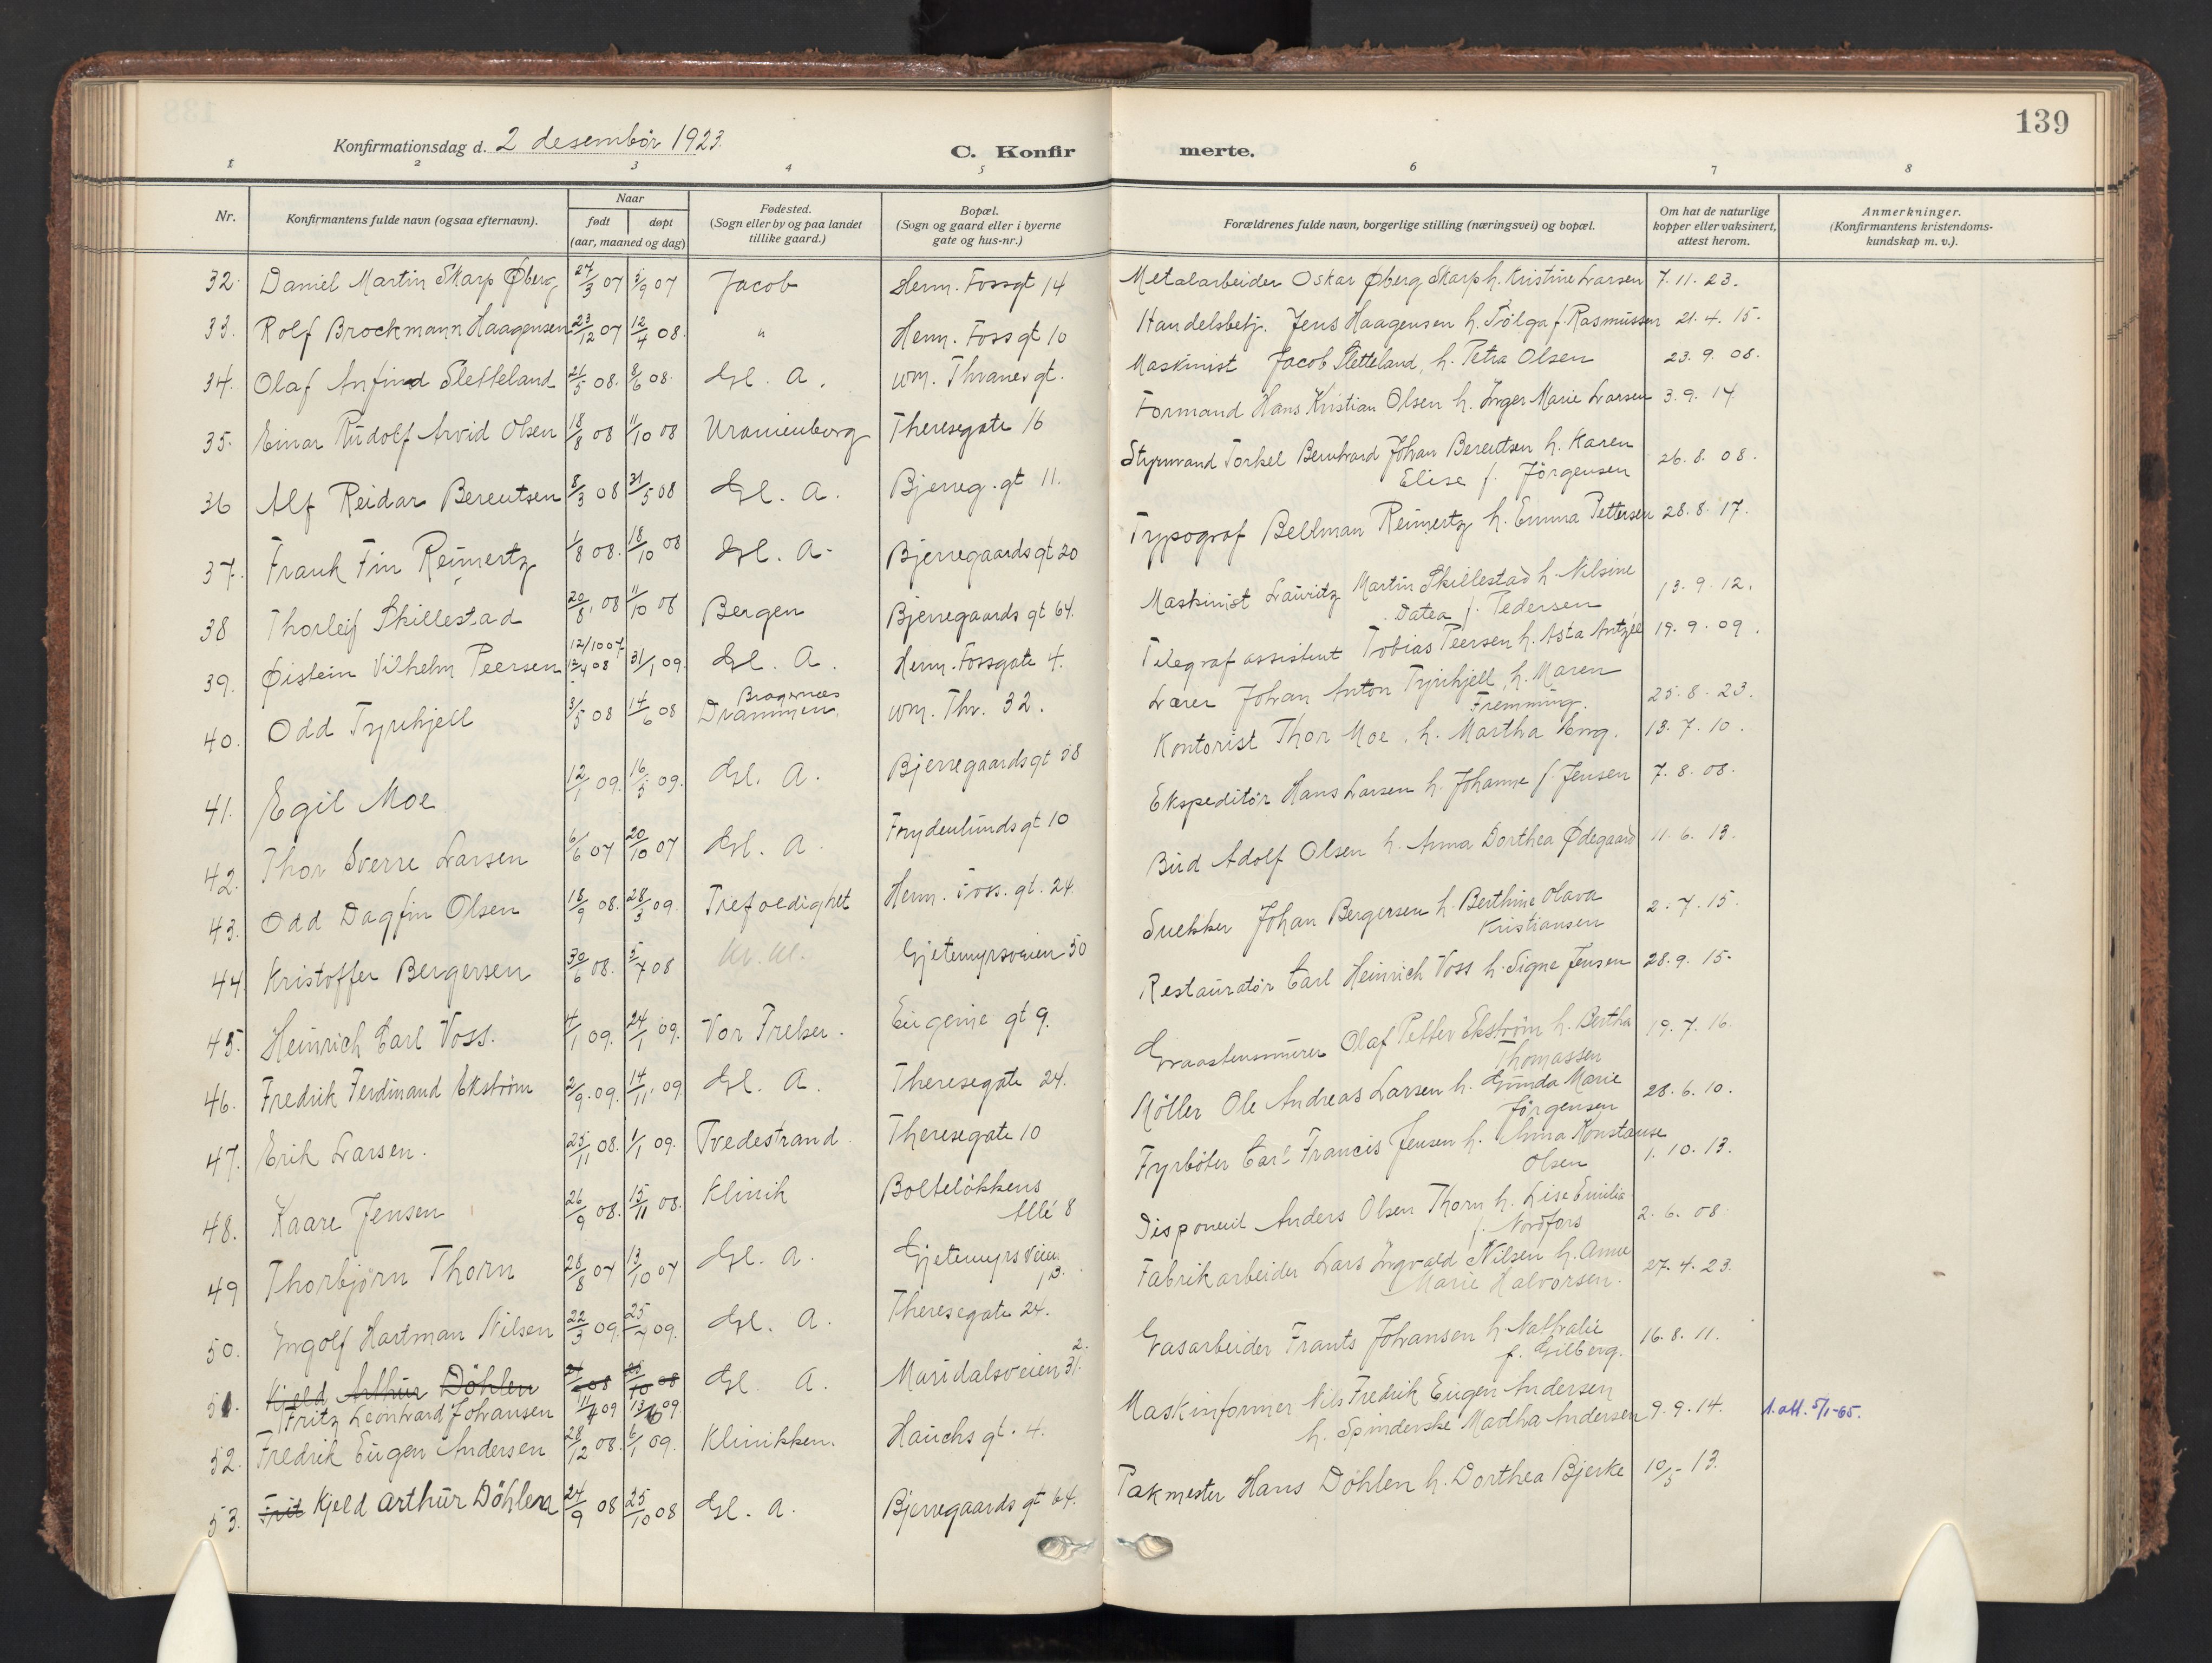 139
Konfirmationsdag d. 2 desember 1923.
C. Konfirmerte.
1 2 3 4 5 6 7 8
Nr. Konfirmantens fulde navn (ogsaa efternavn). Naar født døpt (aar, maaned og dag) Fødested. (Sogn eller by og paa landet tillike gaard.) Bopæl. (Sogn og gaard eller i byerne gate og hus-nr.) Forældrenes fulde navn, borgerlige stilling (næringsvei) og bopæl. Om hat de naturlige kopper eller vaksinert, attest herom. Anmerkninger. (Konfirmantens kristendoms-kundskap m. v.).
32. Daniel Martin Skarp Øberg 27/3 07 1/9 07 Jacob Herm. Fossgt 14 Metalarbeider Oskar Øberg Skarp h. Kristine Larsen 7.11.23.
33. Rolf Brockmann Haagensen 23/12 07 12/4 08. " Herm. Fossgt 10 Handelsbetj. Jens Haagensen h. Helga f. Rasmussen 21.4.15.
34. Olaf Anfind Sletteland 21/5 08. 8/6 08. Gl. A. Wm. Thranes gt. Maskinist Jacob Sletteland, h. Petra Olsen 23.9.08.
35. Einar Rudolf Arvid Olsen 18/8 08 11/10 08 Uranienborg Theresegate 16 Formand Hans Kristian Olsen h. Inger Marie Larsen 3.9.14
36 Alf Reidar Berentsen 8/3 08 31/5 08 Gl. A. Bjerreg. gt 11. Styrmand Torkel Bernhard Johan Berentsen h. Karen Elise f. Jörgensen 26.8.08.
37. Frank Fin Reimertz 1/8 08. 18/10 08 Gl. A. Bjerregaardsgt 20 Typograf Bellman Reimertz h. Emma Pettersen 28.8.17.
38 Thorleif Skillestad 20/8 08 11/10 08 Bergen Bjerregaards gt 64. Maskinist Lauritz Martin Skillestad h. Nilsine Datea f. Pedersen 13.9.12.
39. Øistein Vilhelm Peersen 12/10 07 12/4 08 31/1 09. Gl. A. Herm. Fossgate 4. Telegrafassistent Tobias Peersen h. Asta Antzée 19.9.09.
40. Odd Tyrihjell 3/5 08 14/6 08 Bragernes Drammen. Wm. Thr. 32. Lærer Johan Anton Tyrihjell, h. Maren Fremming. 25.8.23.
41. Egil Moe 12/1 09. 16/5 09. Gl. A. Bjerregaardsgt 58 Kontorist Thor Moe. h. Martha Eng. 13.7.10.
42. Thor Sverre Larsen 6/6 07 20/10 07 Gl. A. Frydenlundsgt 10 Ekspeditör Hans Larsen h. Johanne f. Jensen 7.8.08.
43. Odd Dagfin Olsen 18/9 08. 28/3 09. Trefoldighet Herm. Foss. gt. 24. Bud Adolf Olsen h. Anna Dorthea Ødegaard 11.6.13.
44 Kristoffer Bergersen 30/6 08. 5/7 08 Kv. kl. Gjetemyrsveien 50 Snekker Johan Bergersen h. Berthine Olava Kristiansen 2.7.15.
45. Heinrich Carl Voss. 4/1 09. 24/1 09. Vor Frelser. Eugenie gt 9. Restauratör Carl Heinrich Voss h. Signe Jensen 28.9.15.
46. Fredrik Ferdinand Ekström 2/9. 09. 14/11 09 Gl. A. Theresegate 24. Graastensmurer Olaf Petter Ekström h. Bertha Thomassen 19.7.16.
47. Erik Larsen. 25/11 08. 1/1 09. Tvedestrand. Theresegate 10 Möller Ole Andreas Larsen h. Gunda Marie Jörgensen 28.6.10.
48. Kaare Jensen 26/9 08. 15/11 08. Klinik Bolteløkkens Allé 8 Fyrböter Carl Francis Jensen h. Anna Konstanse Olsen 1.10.13.
49 Thorbjörn Thorn 28/8 07 13/10 07 Gl. A. Gjetemyrsveien 13. Disponent Anders Olsen Thorn h. Lise Emilie f. Nordfors 2.6.08
50. Ingolf Hartman Nilsen 22/3 09. 25/7 09. Gl. A. Theresegate 24. Fabrikarbeider Lars Ingvald Nilsen h. Anne Marie Halvorsen. 27.4.23.
51. Kjeld Arthur Döhlen 24/9 08 25/10 08 Gl. A. Maridalsveien 31. 2.
Fritz Leonhard Johansen 11/4 09 13/6 09 Gasarbeider Frants Johansen h. Nathalie f. Gilberg. 16.8.11.
52. Fredrik Eugen Andersen 28/12 08. 6/1 09. Klinikken. Hauchs gt. 4. Maskinformer Nils Fredrik Eugen Andersen h. Spinderske Martha Andersen 9.9.14. 1.att. 5/1-65.
53. Frit Kjeld Arthur Döhlen 24/9 08 25/10 08 Gl. A. Bjerregaards gt 64. Takmester Hans Döhlen h. Dorthea Bjerke 10/5-13.